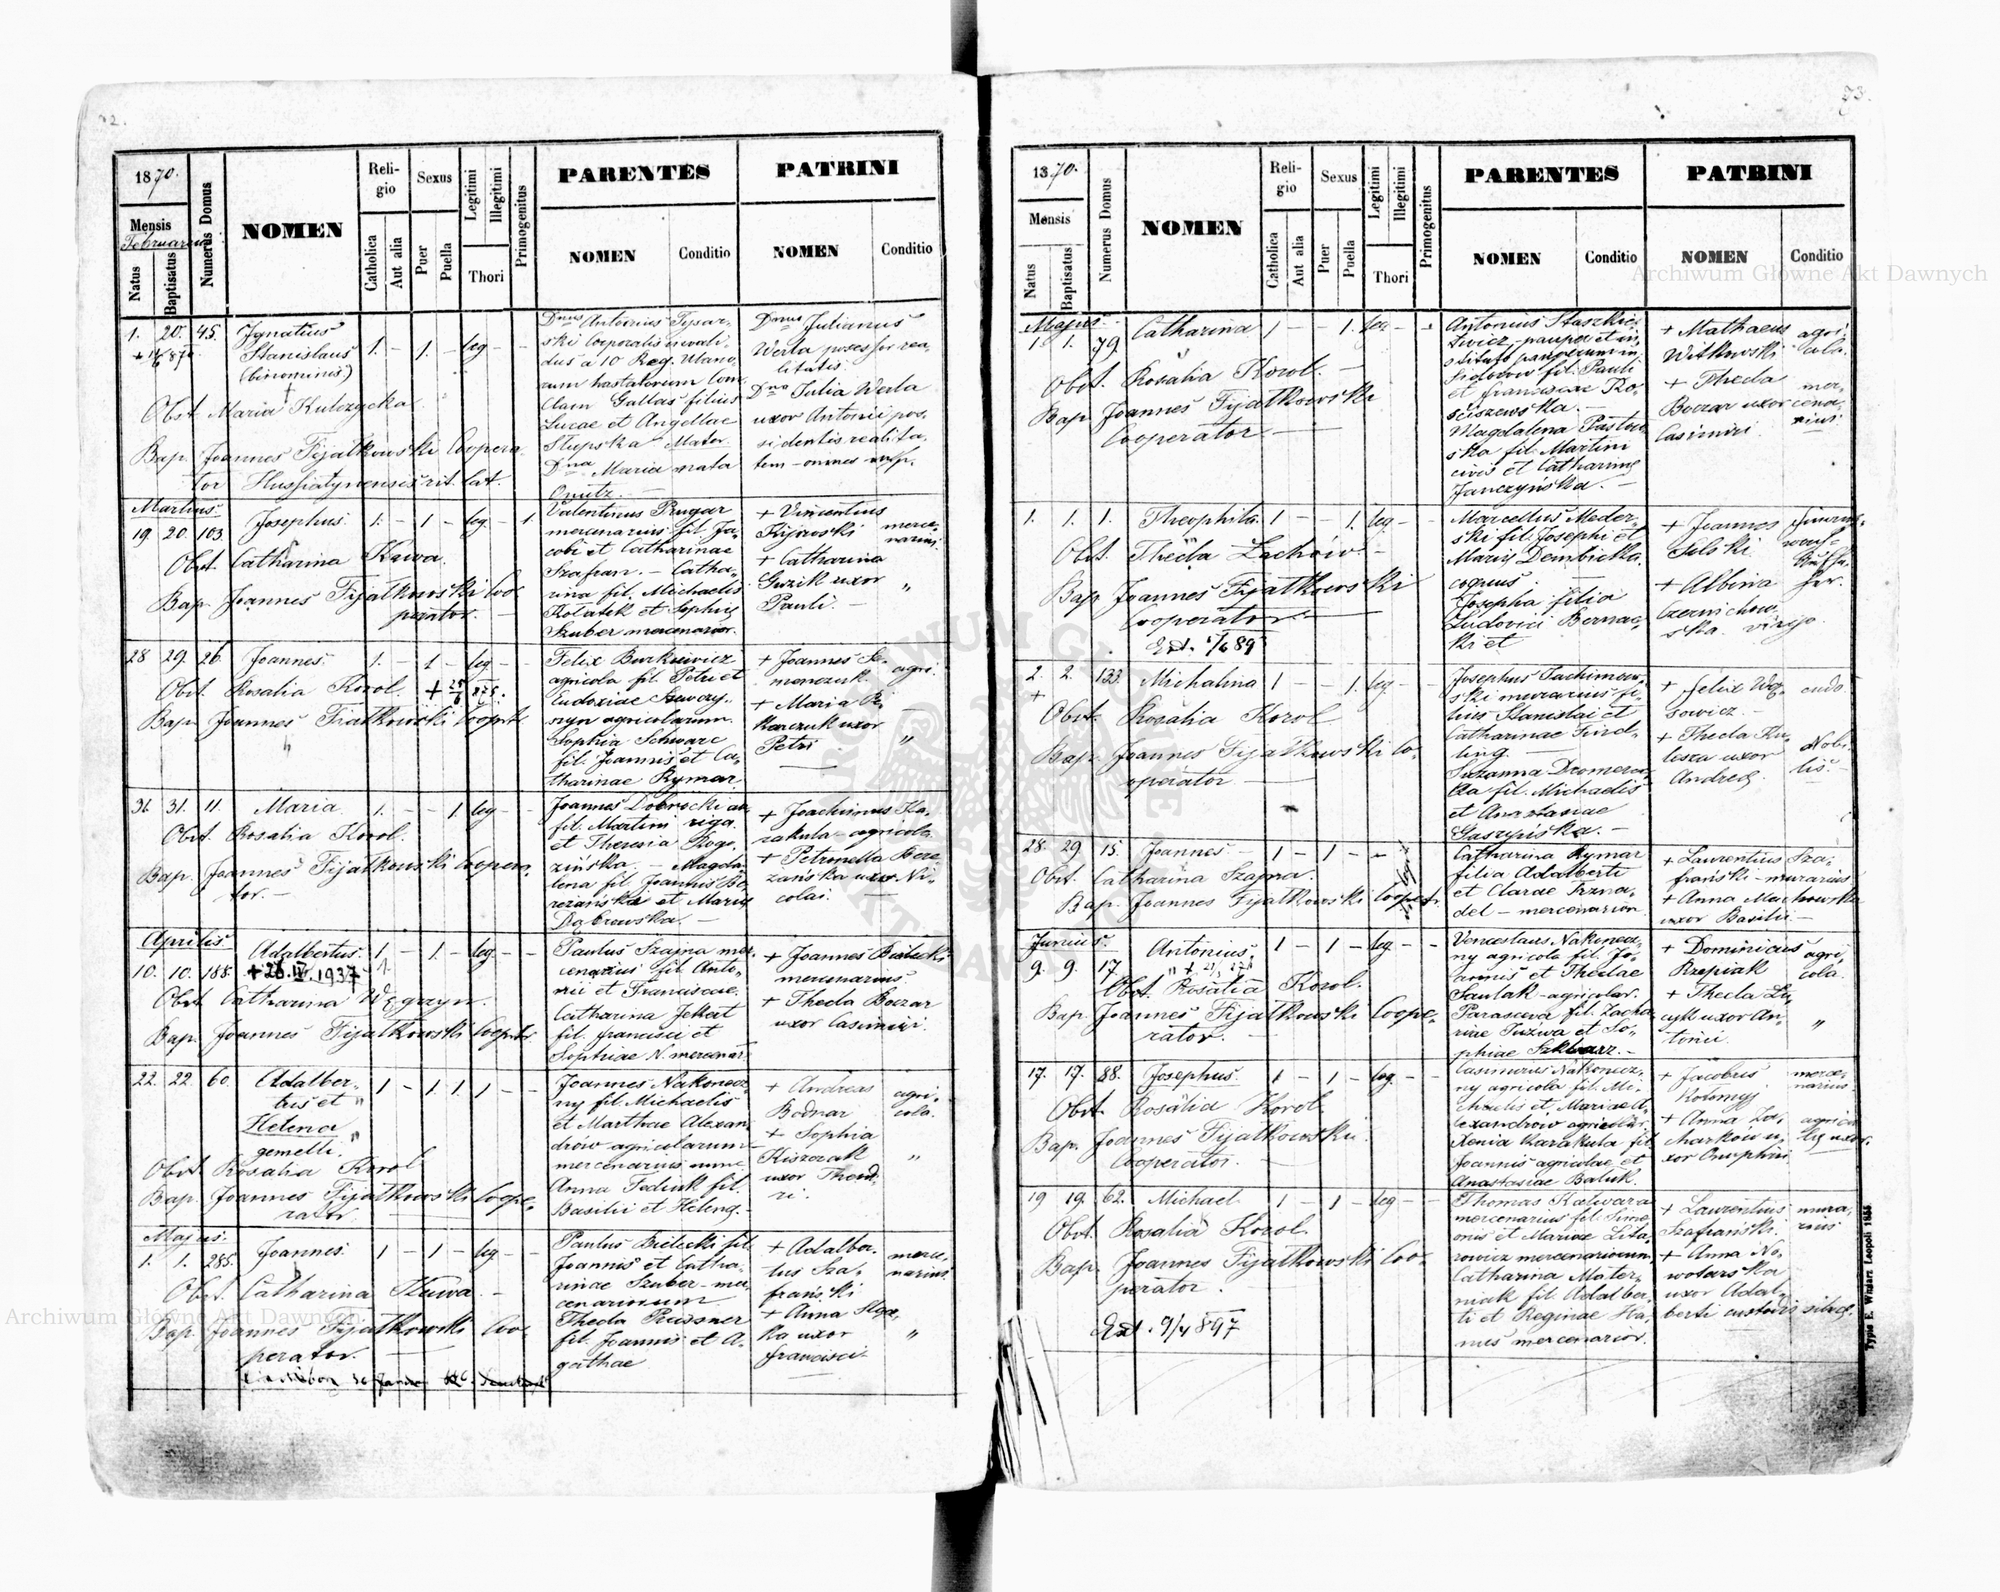 1870.
Mensis
Februarius
Natus
Baptisatus
Numerus Domus
NOMEN
Religio
Catholica
Aut alia
Sexus
Puer
Puella
Legitimi
Illegitimi
Thori
Primogenitus
PARENTES
NOMEN
Conditio
PATRINI
NOMEN
Conditio
1. 20. 45. Ignatius
Stanislaus 1. - 1. - leg - -
(binominis)
Obst. Maria Kulczycka
Bap. Joannes Fijałkowski Coopera
tor Hussiatynensis rit. lat.
Dnus Antonius
ski Corporalis invali-
dus a 10 Reg. Ulano
rum hastatorum Com.
Clam Gallas filius
Lucae et Angellae
Słupska Mater
Dna Maria nata
Dnus Julianus
Werla possessor rea-
litatis.
Dna Julia Werla
uxor Antonii pos-
sidentis realita-
tem - omnes
Martius.
19. 20. 103. Josephus. 1. - 1 - leg. - 1.
Obst. Catharina Kawa.
Bap. Joannes Fijałkowski Coo
perator.
Valentinus Prugar
mercenarius fil. Ja-
cobi et Catharinae
Szafran. - Catha-
rina fil. Michaelis
Rolasik et Sophię
Szuber mercenarior.
+ Vincentius
Kijowski merce-
narius.
+ Catharina
Guzik uxor "
Pauli. -
28 29. 26. Joannes. 1. - 1 - leg - -
Obst. Rosalia Korol.
Bap. Joannes Fiałkowski Cooprtr
Felix Burkiewicz
agricola fil. Petri et
Eudoxiae
agricolarum.
Sophia Schwarc
fil. Joannis et Ca-
tharinae Rymar.
+ Joannes Se- agri.
menczuk.
+ Maria Pi-
karczuk uxor
Petri "
31. 31. 11. Maria 1. - - 1. leg - -
Obst. Rosalia Korol.
Bap. Joannes Fijałkowski Coopera-
tor. -
Joannes Dobrocki
fil. Martini
et Theresia Rogo-
zińska. - Magda-
lena fil. Joannis Bo
rezańska et Marię
Dąbrowska. -
+ Joachimus Ka-
rakula - agricola
+ Petronella Bere-
zańska uxor Ni-
colai.
Aprilis
10. 10. 188. Adalbertus. 1. - 1. - leg. - -
+ 26.IV.1937
Obst. Catharina Węgrzyn.
Bap. Joannes Fijałkowski Cooprtr
Paulus Szajna mer-
cenarius fil. Anto-
nii et Franciscae.
Catharina
fil. Francisci et
Sophiae N. mercenar.
+ Joannes Bielecki
mercenarius
+ Thecla Boczar
uxor Casimiri.
22. 22. 60. Adalber- 1 - 1. 1. 1 - -
tus et "
Helena
gemelli.
Obst. Rosalia Korol
Bap. Joannes Fijałkowski Coope-
rator
Joannes Nakonecz-
ny fil. Michaelis
et Marthae Alexan
drow agricolarum
mercenarius nunc
Anna Fediuk fil.
Basilii et Helenę. -
+ Andreas agri-
Bodnar cola.
+ Sophia
Kiszczak "
uxor Theod.
ri.
Majus.
1. 1. 285. Joannes. 1 - 1 - leg - -
Obst. Catharina Kawa. -
Bap. Joannes Fijałkowski Coo-
perator.
Paulus Bielecki fil.
Joannis et Catha-
rinae Szuber - mer
cenariorum
Thecla Prissner
fil. Joannis et A-
gathae
+ Adalber- merce-
tus Sza- narius
frański
+ Anna
uxor "
Francisci
73.
1870.
Mensis
Natus
Baptisatus
Numerus Domus
NOMEN
Religio
Catholica
Aut alia
Sexus
Puer
Puella
Legitimi
Illegitimi
Thori
Primogenitus
PARENTES
NOMEN
Conditio
PATRINI
NOMEN
Conditio
Majus
1. 1. 79. Catharina 1 - - 1. leg -
Obst. Rosalia Korol. -
Bap. Joannes Fijałkowski
Cooperator
Antonius Staszkie-
wicz, pauper et in
stituto pauperum in
fil. Pauli
et Franciscae Ro-
ściszewska. -
Magdalena Pastow
ska fil. Martini
civis et Catharinę
Janczyńska. -
+ Mathaeus agri-
Witkowski cola.
+ Thecla mer-
Boczar uxor cena-
Casimiri. rius.
1. 1. 1. Theophila 1 - - 1. leg -
Obst. Thecla Lachów. -
Bap. Joannes Fijałkowski
Cooperator.
Marcellus Meder-
ski fil. Josephi et
Marię Dembicka.
coquus.
Josepha filia
Ludovici Bernac-
ki et
+ Joannes
Silski
+ Albina
Czernichow-
ska. virgo.
2. 2. 133. Michalina 1 - - 1. leg -
+
Obst. Rosalia Korol
Bap. Joannes Fijałkowski Co-
operator -
Josephus Jachimow-
ski murarius fi-
lius Stanislai et
Catharinae Tind-
ling.
Suzanna Dromerec-
ka fil. Michaelis
et Anastasiae
Gaszyńska. -
+ Felix Wą-
sowicz. -
+ Thecla Ku-
lesza uxor Nobi-
Andreę. lis. -
28. 29. 15. Joannes - 1 - 1 -
Obst. Catharina Szajna.
Bap. Joannes Fijałkowski Coopertr.
Catharina Rymar
filia Adalberti
et Clarae Trzna-
del - mercenarior
+ Laurentius Sza-
frański - murarius
+ Anna Machowska
uxor Basilii -
Junius.
9. 9. 17. Antonius. 1 - 1 - leg - -
Obst. Rosalia Korol.
Bap. Joannes Fijałkowski Coope-
rator.
Venceslaus Nakonecz-
ny agricola fil. Jo-
annis et Theclae
Saulak - agricolar.
Parasceva fil. Zacha
riae Tuziva et So-
phiae Szkwarz. -
+ Dominicus agri-
Rzepiak cola.
+ Thecla Lu-
cyk uxor An- "
tonii.
17. 17. 88. Josephus. 1 - 1 - leg. - -
Obst. Rosalia Korol.
Bap. Joannes Fijałkowski
Cooperator. -
Casimirus Nakonecz-
ny agricola fil. Mi-
chaelis et Mariae A-
lexandrow agricolar.
Xenia Karakula fil
Joannis agricolae et
Anastasiae Baluk.
+ Jacobus merce-
Kołomyj narius
+ Anna Za-
charkow u-
xor Onuphrii
19 19. 62. Michael 1 - 1 - leg - -
Obst. Rosalia Korol
Bap. Joannes Fijałkowski Coo-
perator
Ext. 9/4 897
Thomas Kalwara
mercenarius fil. Sime-
onis et Mariae Lita-
rowicz mercenariorum
Catharina Mater-
niak fil. Adalber-
ti et Reginae Ha-
nus mercenarior.
+ Laurentius mura-
Szafrański. rius
+ Anna No-
wotarska
uxor Adal-
berti custodis silvę.
Typis E. Winiarz Leopoli 1855
Archiwum Główne Akt Dawnych
Archiwum Główne Akt Dawnych